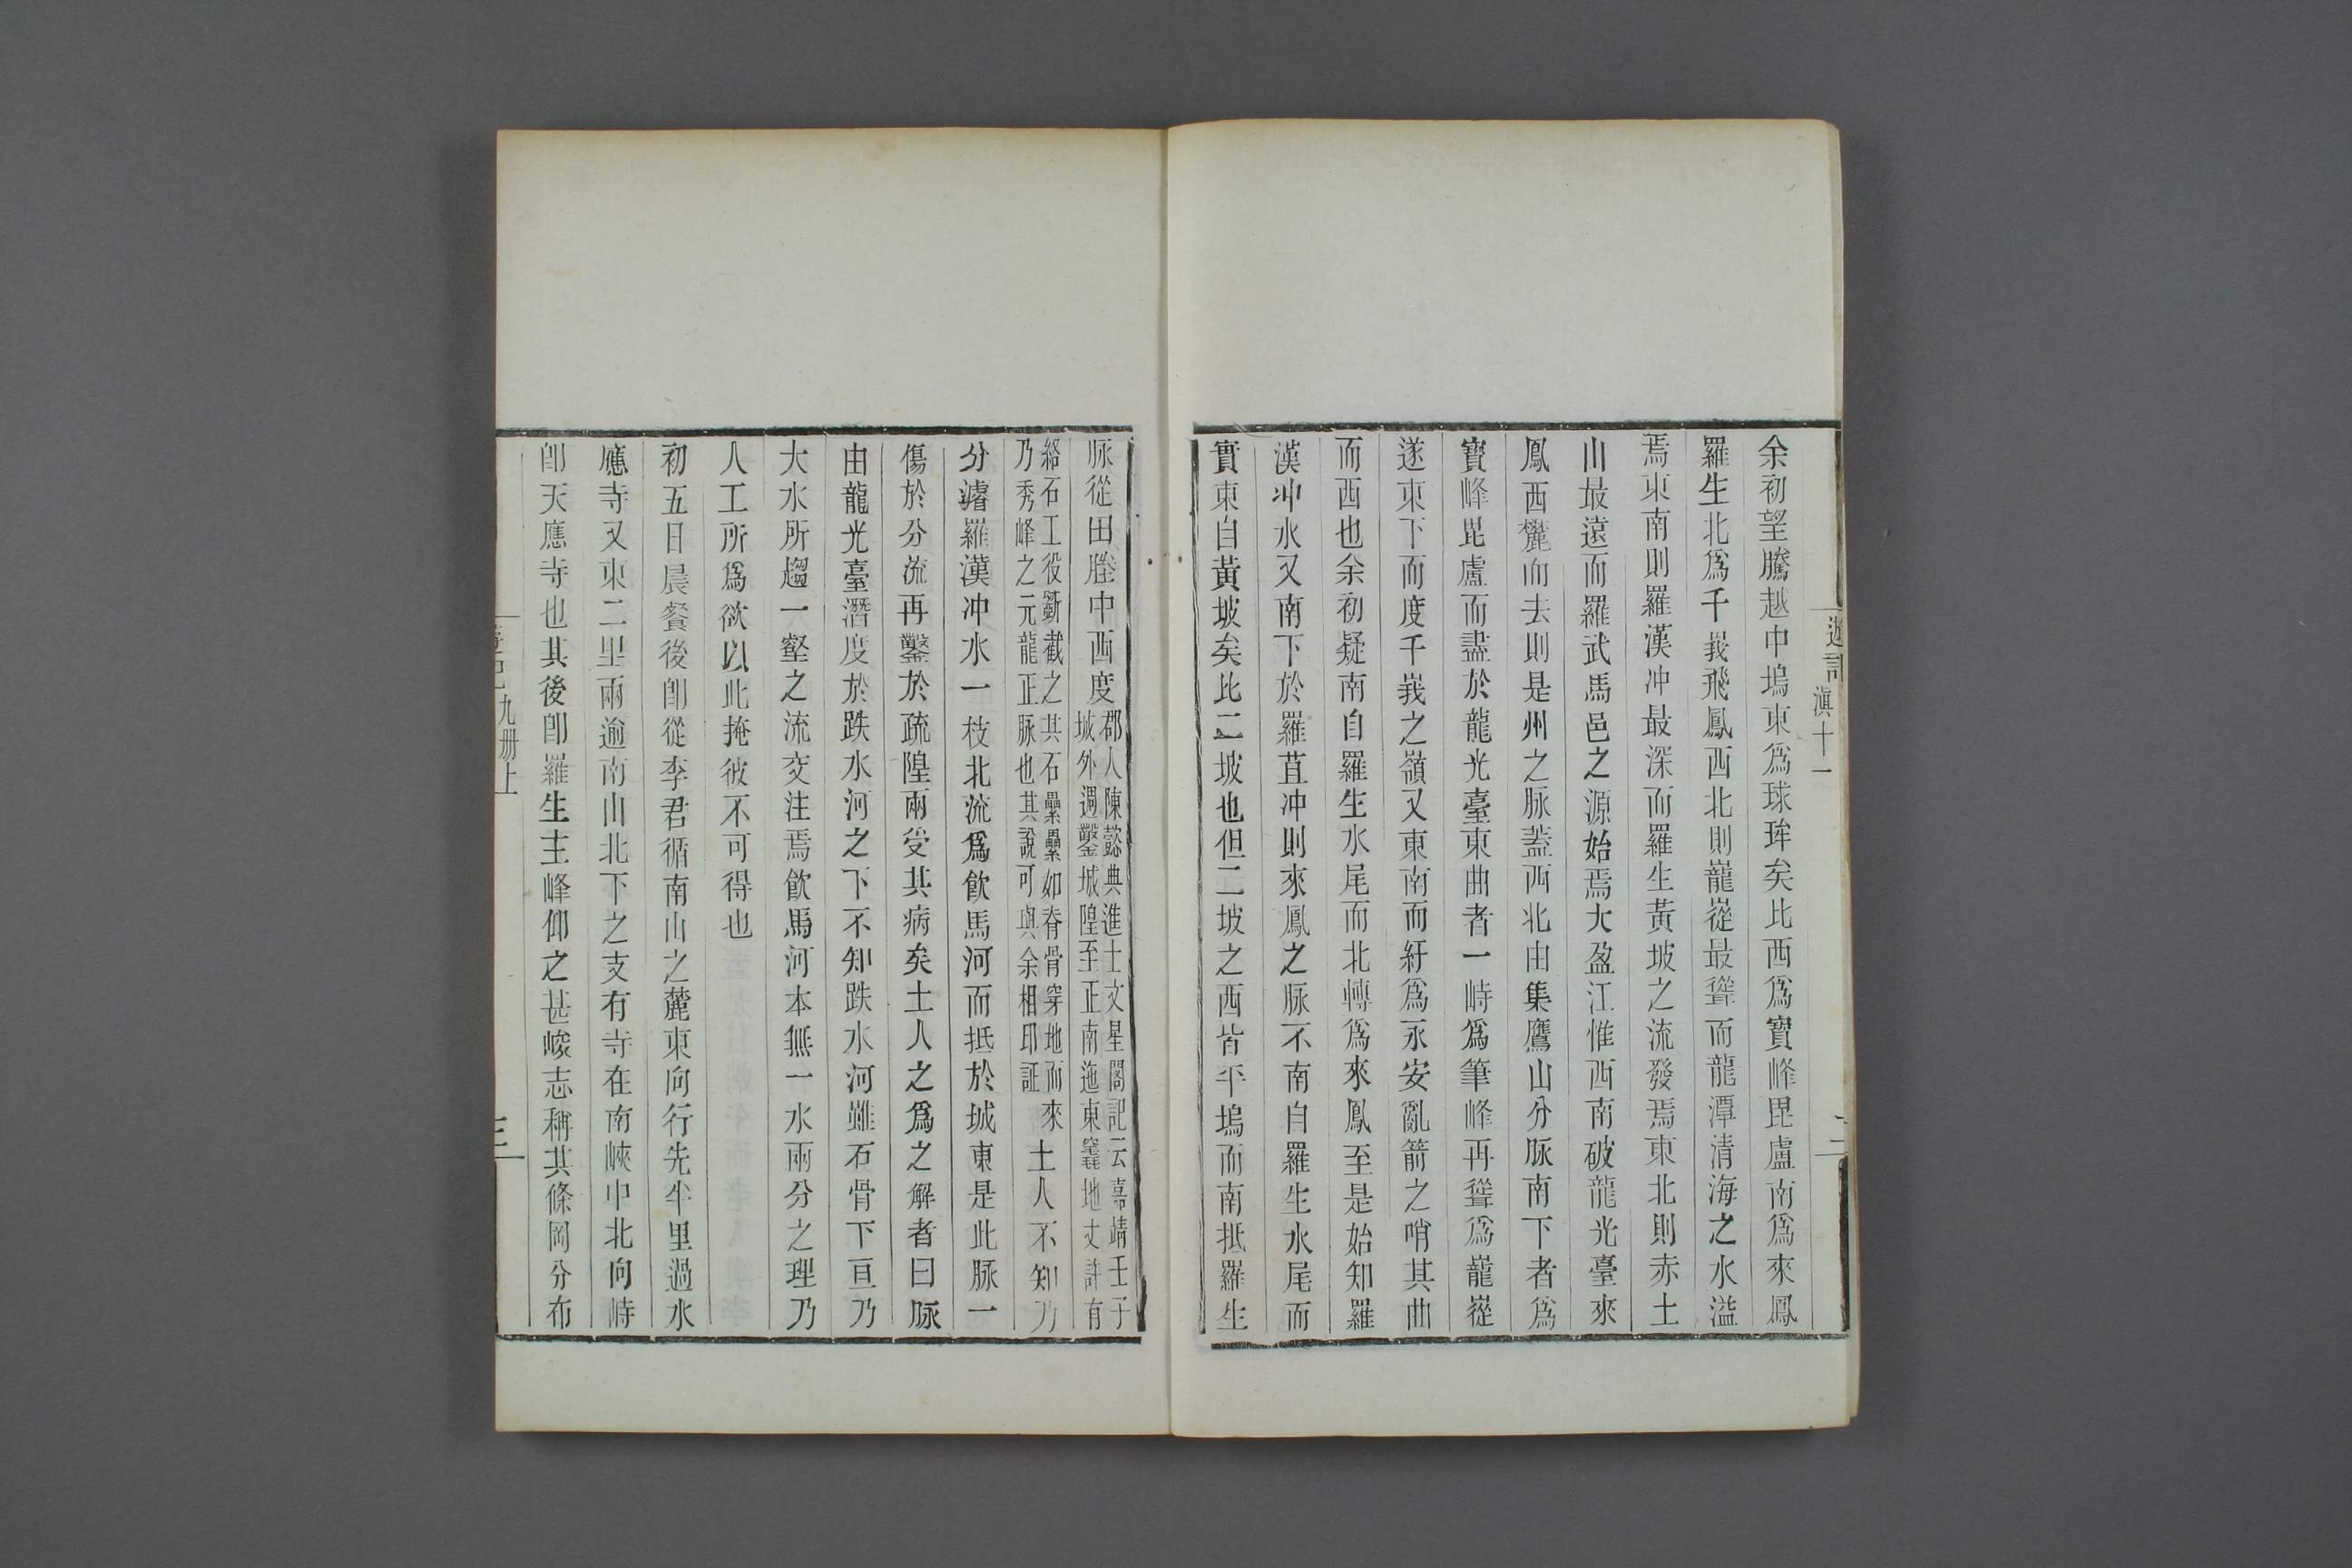 遊記 滇十一 二
余初望騰越中塢東爲球𤥨矣比西爲寶峰毘盧南爲來鳳
羅生北爲千峩飛鳳西北則巃嵸最聳而龍潭清海之水溢
焉東南則羅漢冲最深而羅生黃坡之流發焉東北則赤土
山最遠而羅武馬邑之源始焉大盈江惟西南破龍光臺來
鳳西麓而去則是州之脉蓋西北由集鷹山分脉南下者爲
寶峰毘盧而盡於龍光臺東曲者一峙爲筆峰再聳爲巃嵸
遂東下而度千峩之嶺又東南而紆爲永安亂箭之哨其曲
而西也余初疑南自羅生水尾而北轉爲來鳳至是始知羅
漢冲水又南下於羅苴冲則來鳳之脉不南自羅生水尾而
實東自黃坡矣比二坡也但二坡之西皆平塢而南抵羅生
脉從田塍中西度
郡人陳懿典進士文星閣記云嘉靖壬子
城外週鑿城隍至正南迤東窰地丈許有
絡石工役斵截之其石纍纍如脊骨穿地而來
乃秀峰之元龍正脉也其說可與余相印証
土人不知乃
分濬羅漢冲水一枝北流爲飲馬河而抵於城東是此脉一
傷於分流再鑿於疏隍兩受其病矣土人之爲之解者曰脉
由龍光臺潛度於跌水河之下不知跌水河雖石骨下亘乃
大水所趨一壑之流交注焉飲馬河本無一水兩分之理乃
人工所爲欲以此掩彼不可得也
初五日晨餐後卽從李君循南山之麓東向行先半里過水
應寺又東二里兩逾南山北下之支有寺在南峽中北向峙
卽天應寺也其後卽羅生主峰仰之甚峻志稱其條岡分布
遊記九册上
三